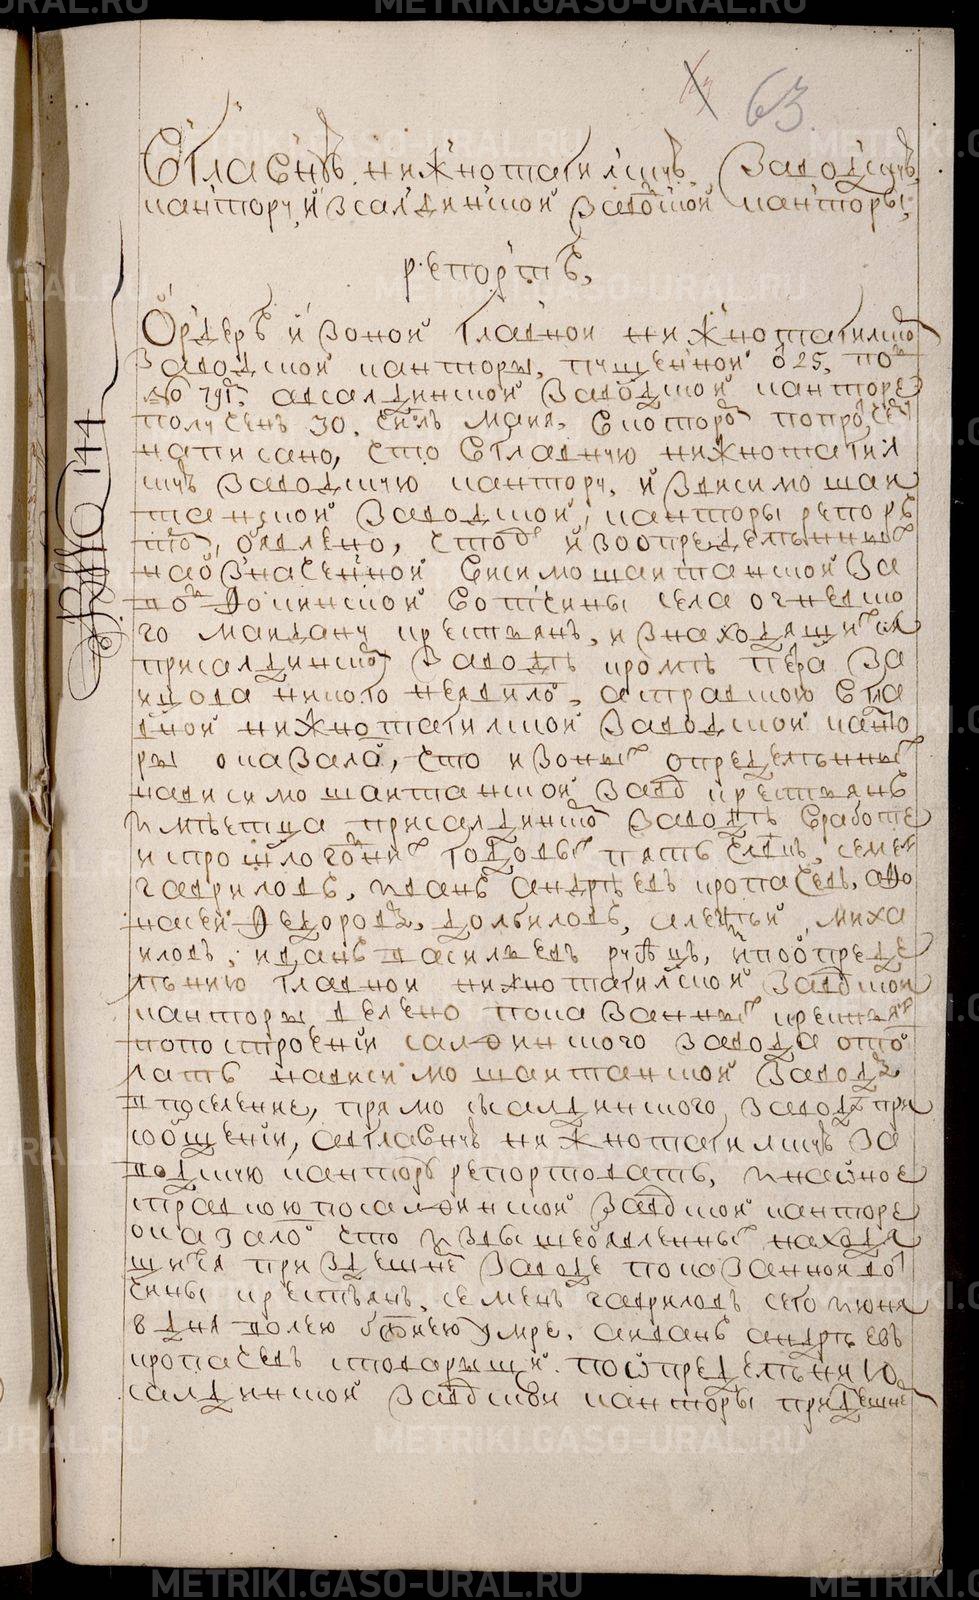 63
Въ главную нижнотагилскую заводскую
кантору, из салдинской заводской канторы,
репортъ,
Ордеръ из оной главной нижнотагилской
заводской канторы, пущенной 25, под
№ 791, в салдинской заводской канторе
полученъ 30, числъ маия, в которомъ
написано, что в главную нижнотагил
скую заводскую кантору, из висимошай
танской заводской канторы репор
томъ, объявлено, что из воопределенных
на обзначенной висимошайтанской за
водъ фокинской вотчины села
го майдану крестьянъ, и знаходящихся
при салдинском заводъ кроме за
никого неявило, а справкою в гла
вной нижнотагилской заводской канто
ры оказала, что из оных определенных
на висимошайтанской завод крестьянъ
имъетца при салдинском заводъ в работе
и с прошлого годов пять человекъ, семен
гавриловъ, иванъ андръевъ пропачевъ, афо
насей федоровъ, долбиловъ, алексей миха
иловъ, иванъ васильевъ и по опреде
лению главной нижнотагилской заводской
канторы велено показанных крестьян
по построении салдинского завода ото
слать на висимошайтанской заводъ
в поселение, прямо и салдинского завода при
сообщении, а в главную нижнотагилскую за
водскую кантору репортовать, и
справкою по салдинской заводской канторе
оказало что из вышеобъявленных находя
щихся при здешнем заводе показанной во
чины крестьянъ, семенъ гавриловъ сего июня
8 дня волею божиею умре, а иванъ андръевъ
пропачевъ с товарыщи по определению
салдинской заводской канторы при здешне
№ 144